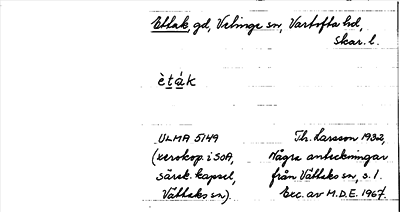 Ettak, gd, Velinge sn, Vartofta hd,
Skar. l.
èták
ULMA 5149 Th. Larsson 1932,
(xerokop. i SOA, Några anteckningar
särsk. kapsel, från Vättaks sn, s. 1.
Vättaks sn). Exc. av M.D.E. 1967.